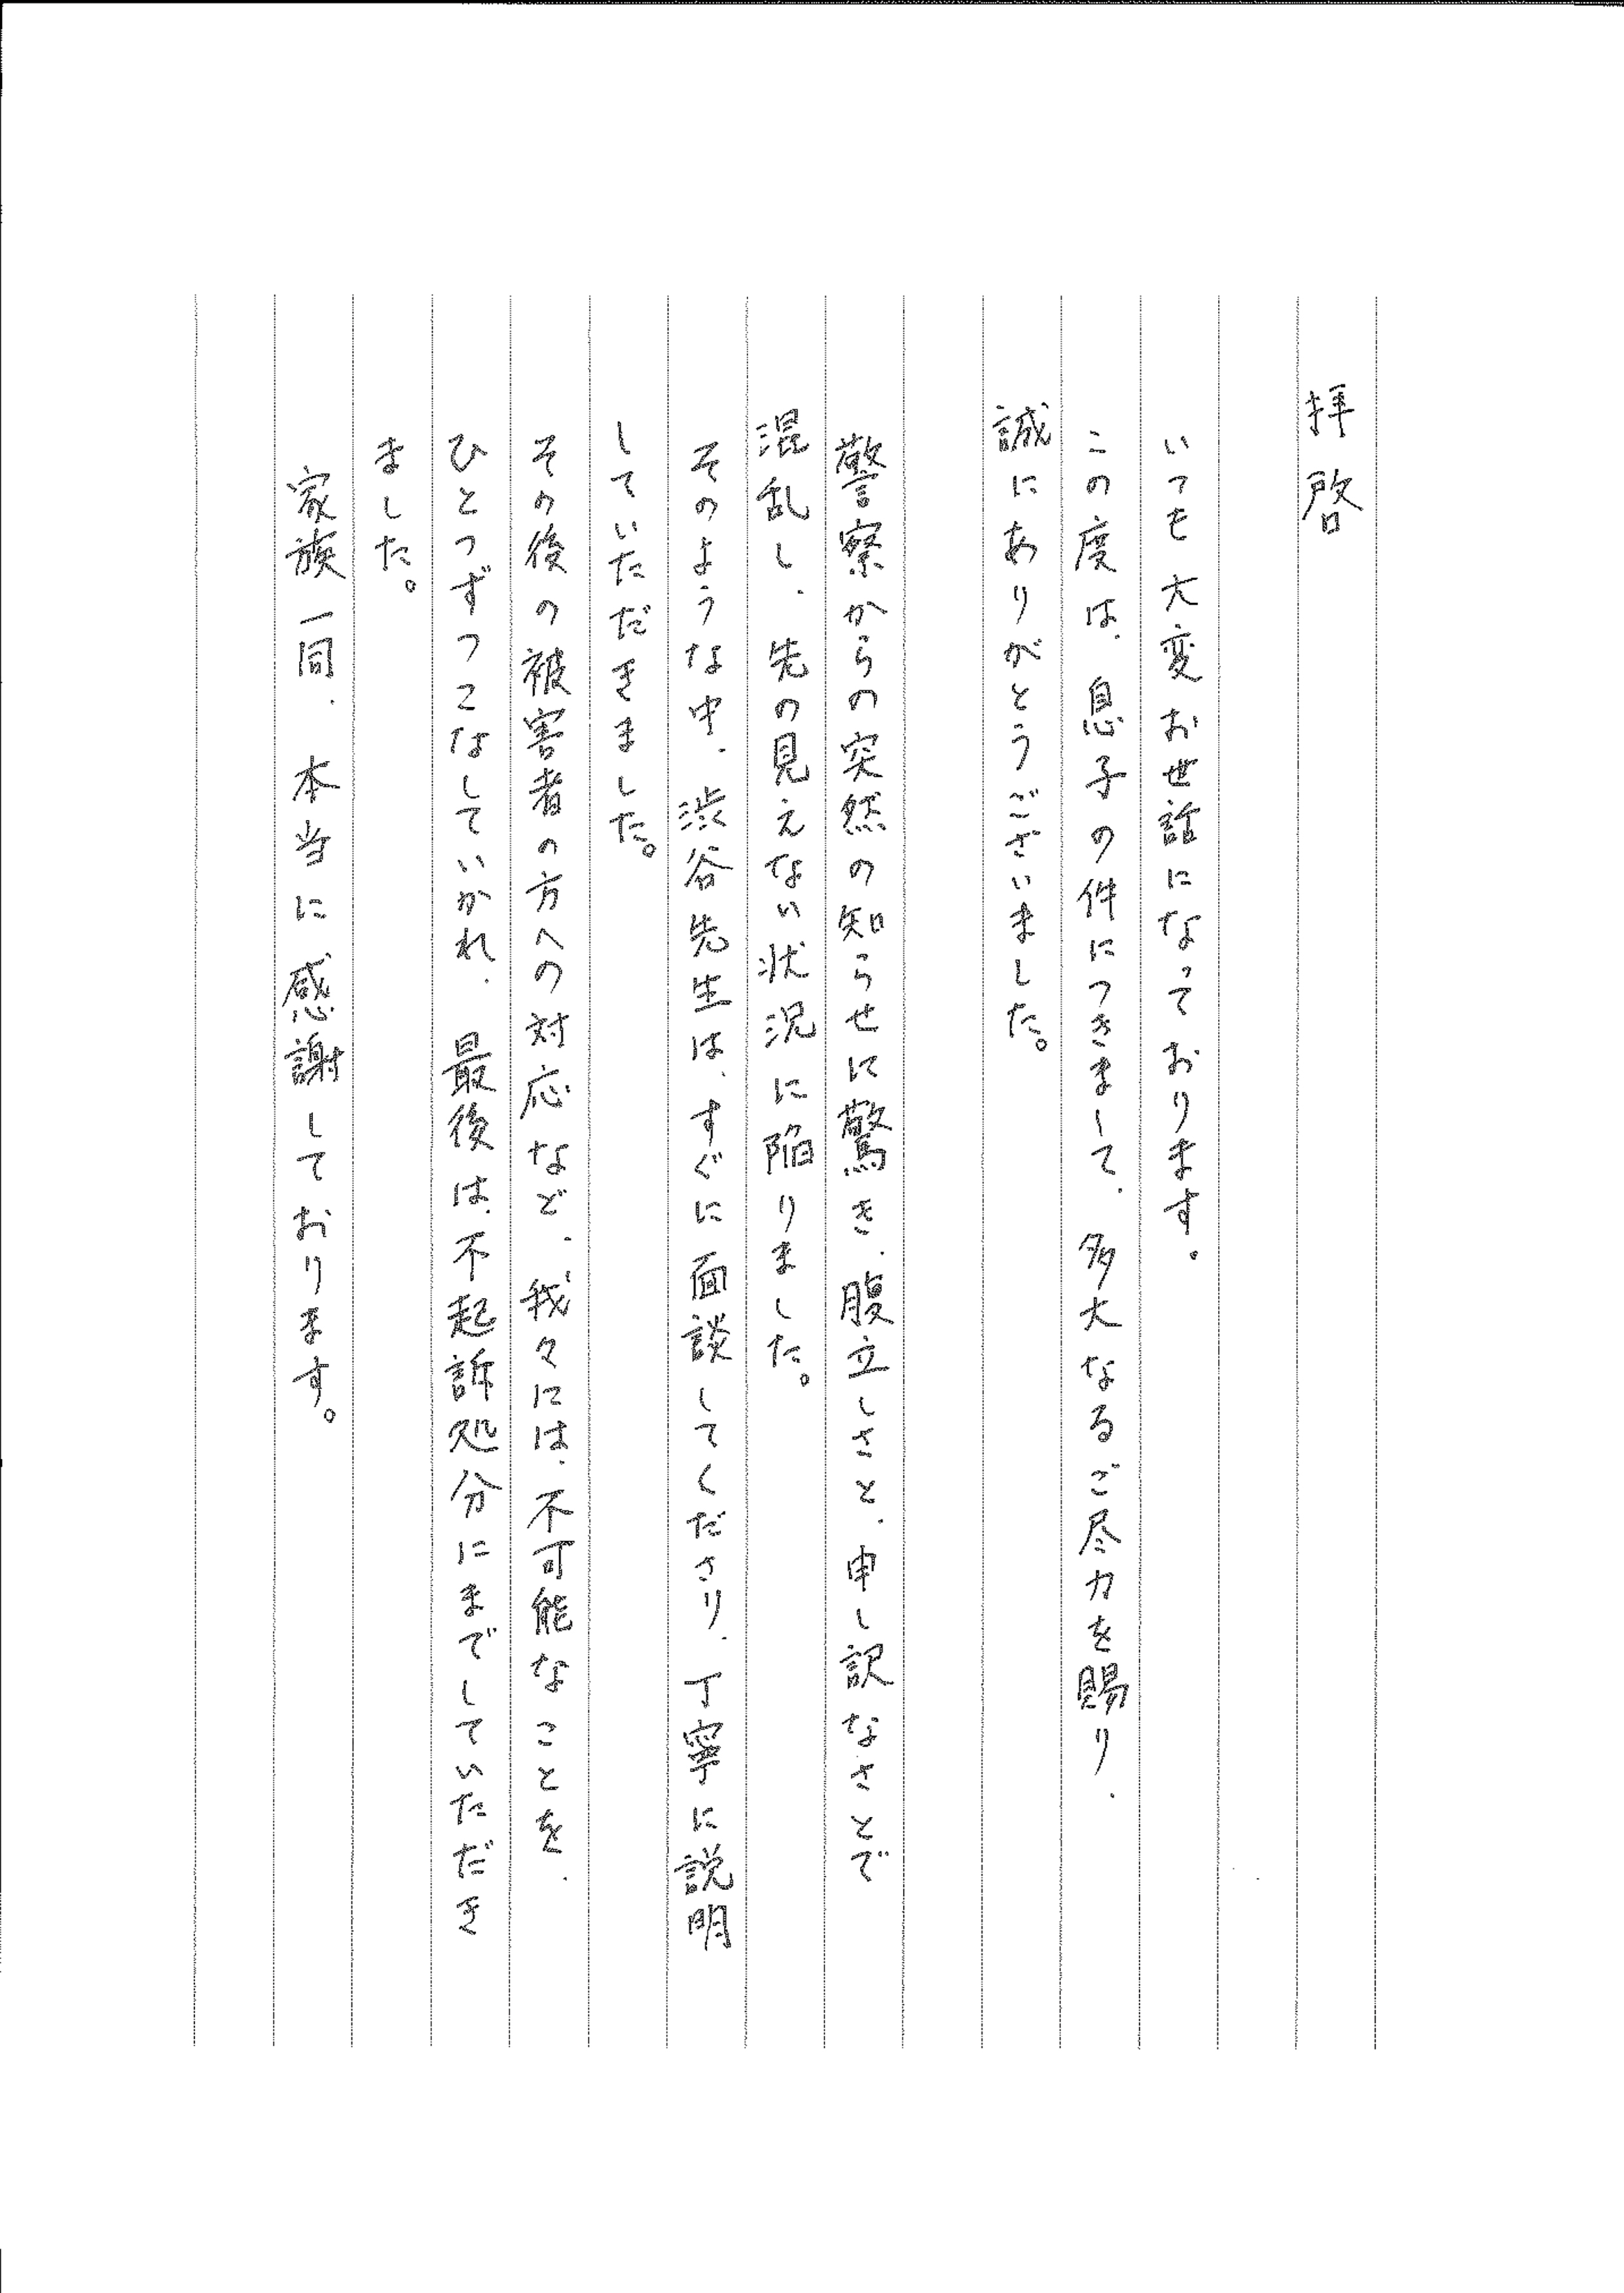 拝啓
いつも大変お世話になっております。
この度は、息子の件につきまして、多大なるご尽力を賜り、
誠にありがとうございました。
警察からの突然の知らせに驚き、腹立しさと、申し訳なさとで
混乱し、先の見えない状況に陥りました。
そのような中、渋谷先生は、すぐに面談してくださり、丁寧に説明
していただきました。
その後の被害者の方への対応など、我々には、不可能なことを、
ひとつずつこなしていかれ、最後は、不起訴処分にまでしていただき
ました。
家族一同、本当に感謝しております。